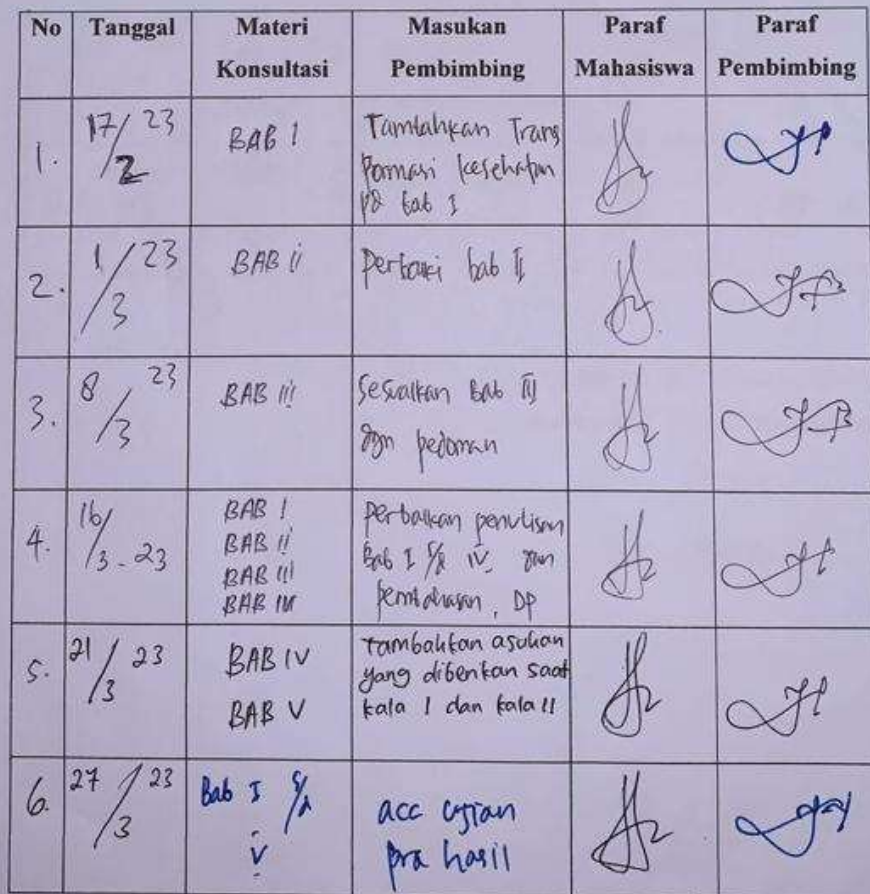 No Tanggal Materi Konsultasi Masukan Pembimbing Paraf Mahasiswa Paraf Pembimbing
1. 17/2 23 BAB I
Tambahkan Trans
formasi kesehatan
pd bab I
2. 1/3 23 BAB II
Perbaiki bab II
3. 8/3 23 BAB III
Sesuaikan Bab III
dgn pedoman
4. 16/3-23
BAB I
BAB II
BAB III
BAB IV
Perbaikan penulisan
Bab I s/d IV
pembahasan, DP
5. 21/3 23
BAB IV
BAB V
Tambahkan asuhan
yang diberikan saat
kala I dan kala II
6. 27/3 23
Bab I s/d
V
acc ujian
pra hasil